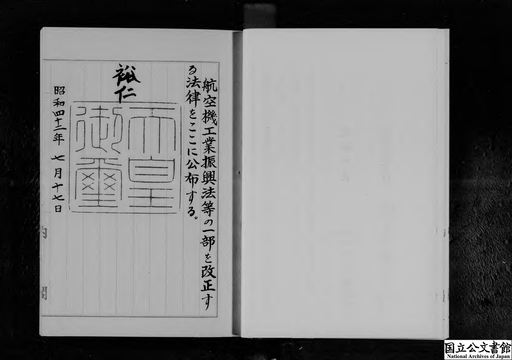 航空機工業振興法等の一部を改正す
る法律をここに公布する。
裕仁
天皇
御璽
昭和四十二年 七月十七日
国立公文書館
National Archives of Japan